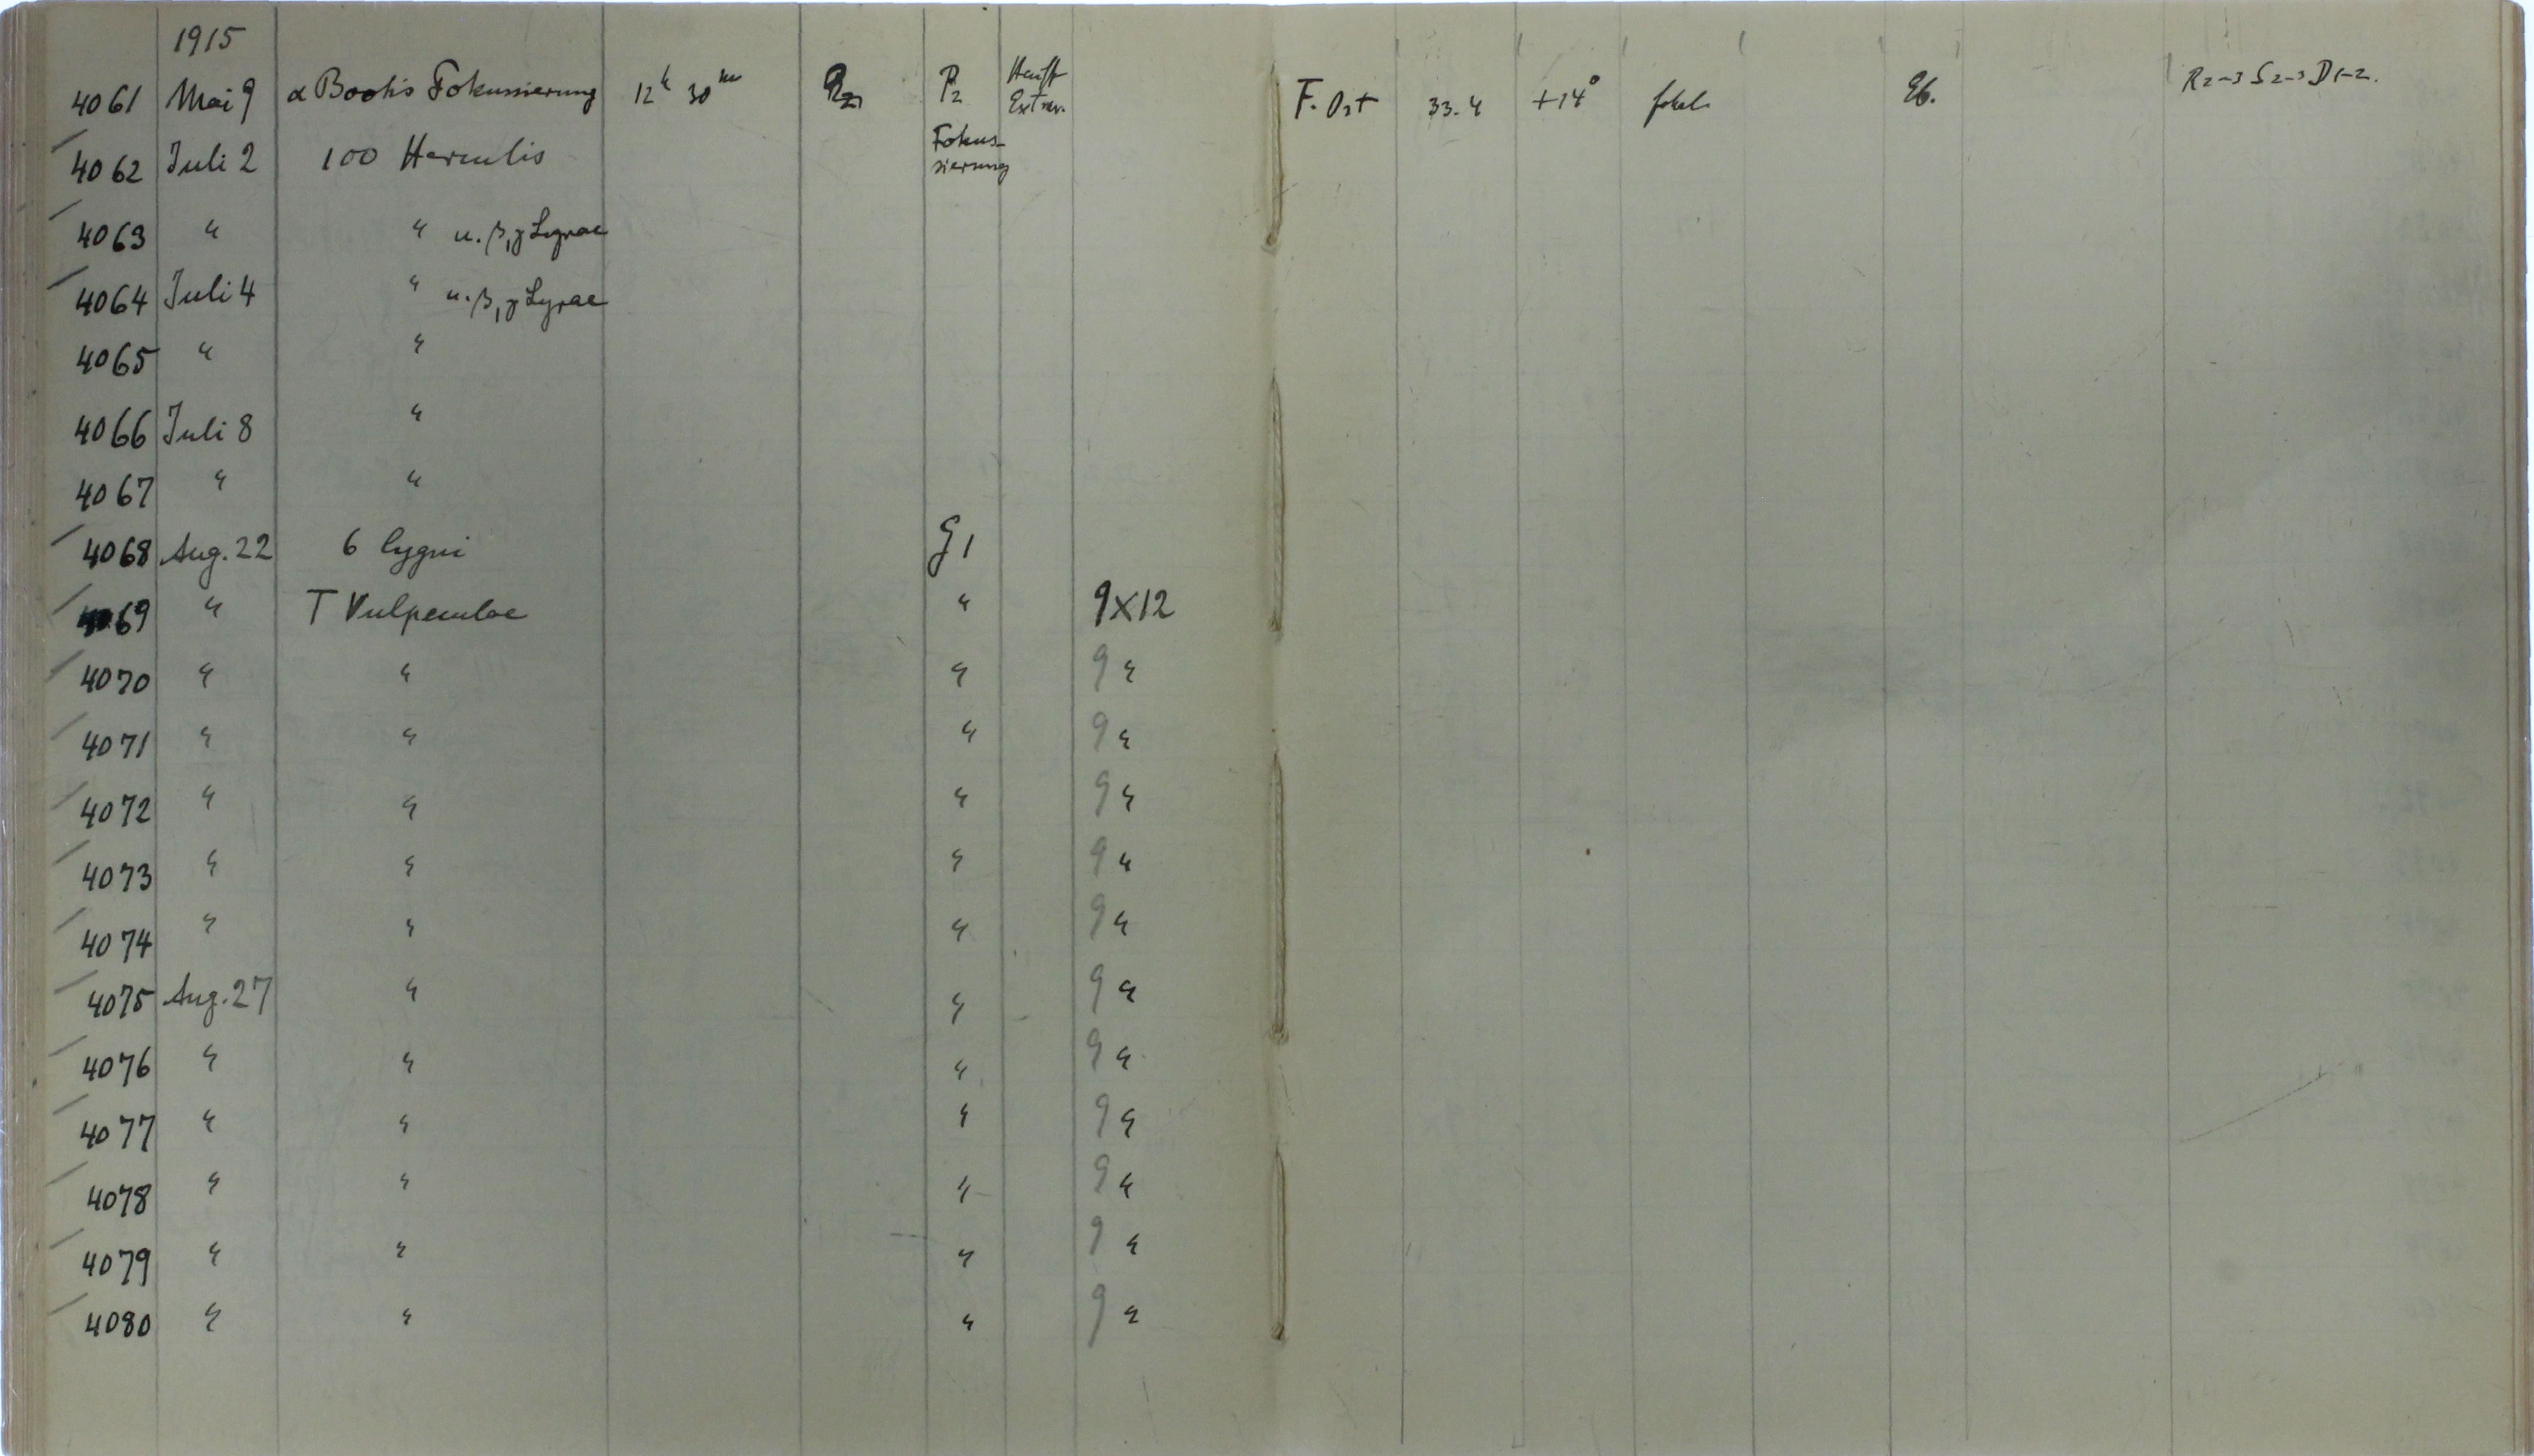 1915
4061 Mai 9 α Bootis Fokussierung 12h 30m P2 Hauff Extrar. F. Ost 33.4 +14° fokal R2-3 S2-3 D1-2.
4062 Juli 2 100 Herculis Fokus-
sierung
4063 " " u. β, γ Lyrae
4064 Juli 4 " u. β, γ Lyrae
4065 " "
4066 Juli 8 "
4067 " "
4068 Aug. 22 6 Cygni G1
4069 " T Vulpeculae " 9x12
4070 " " " 9 "
4071 " " " 9 "
4072 " " " 9 "
4073 " " " 9 "
4074 " " " 9 "
4075 Aug. 27 " " 9 "
4076 " " " 9 "
4077 " " " 9 "
4078 " " " 9 "
4079 " " " 9 "
4080 " " " 9 "